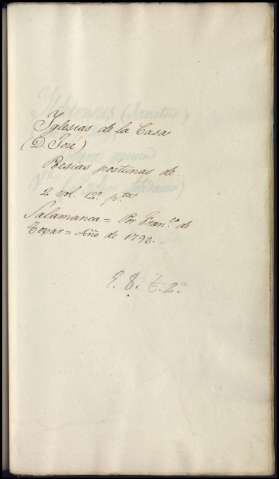 Yglesias de la Casa
(D. José)
Poesias postumas de.
2 vol. 12º pᵗᵃ
Salamanca = Por Franᶜᵒ de
Tovar = Año de 1793.
E. 8. t. 2º